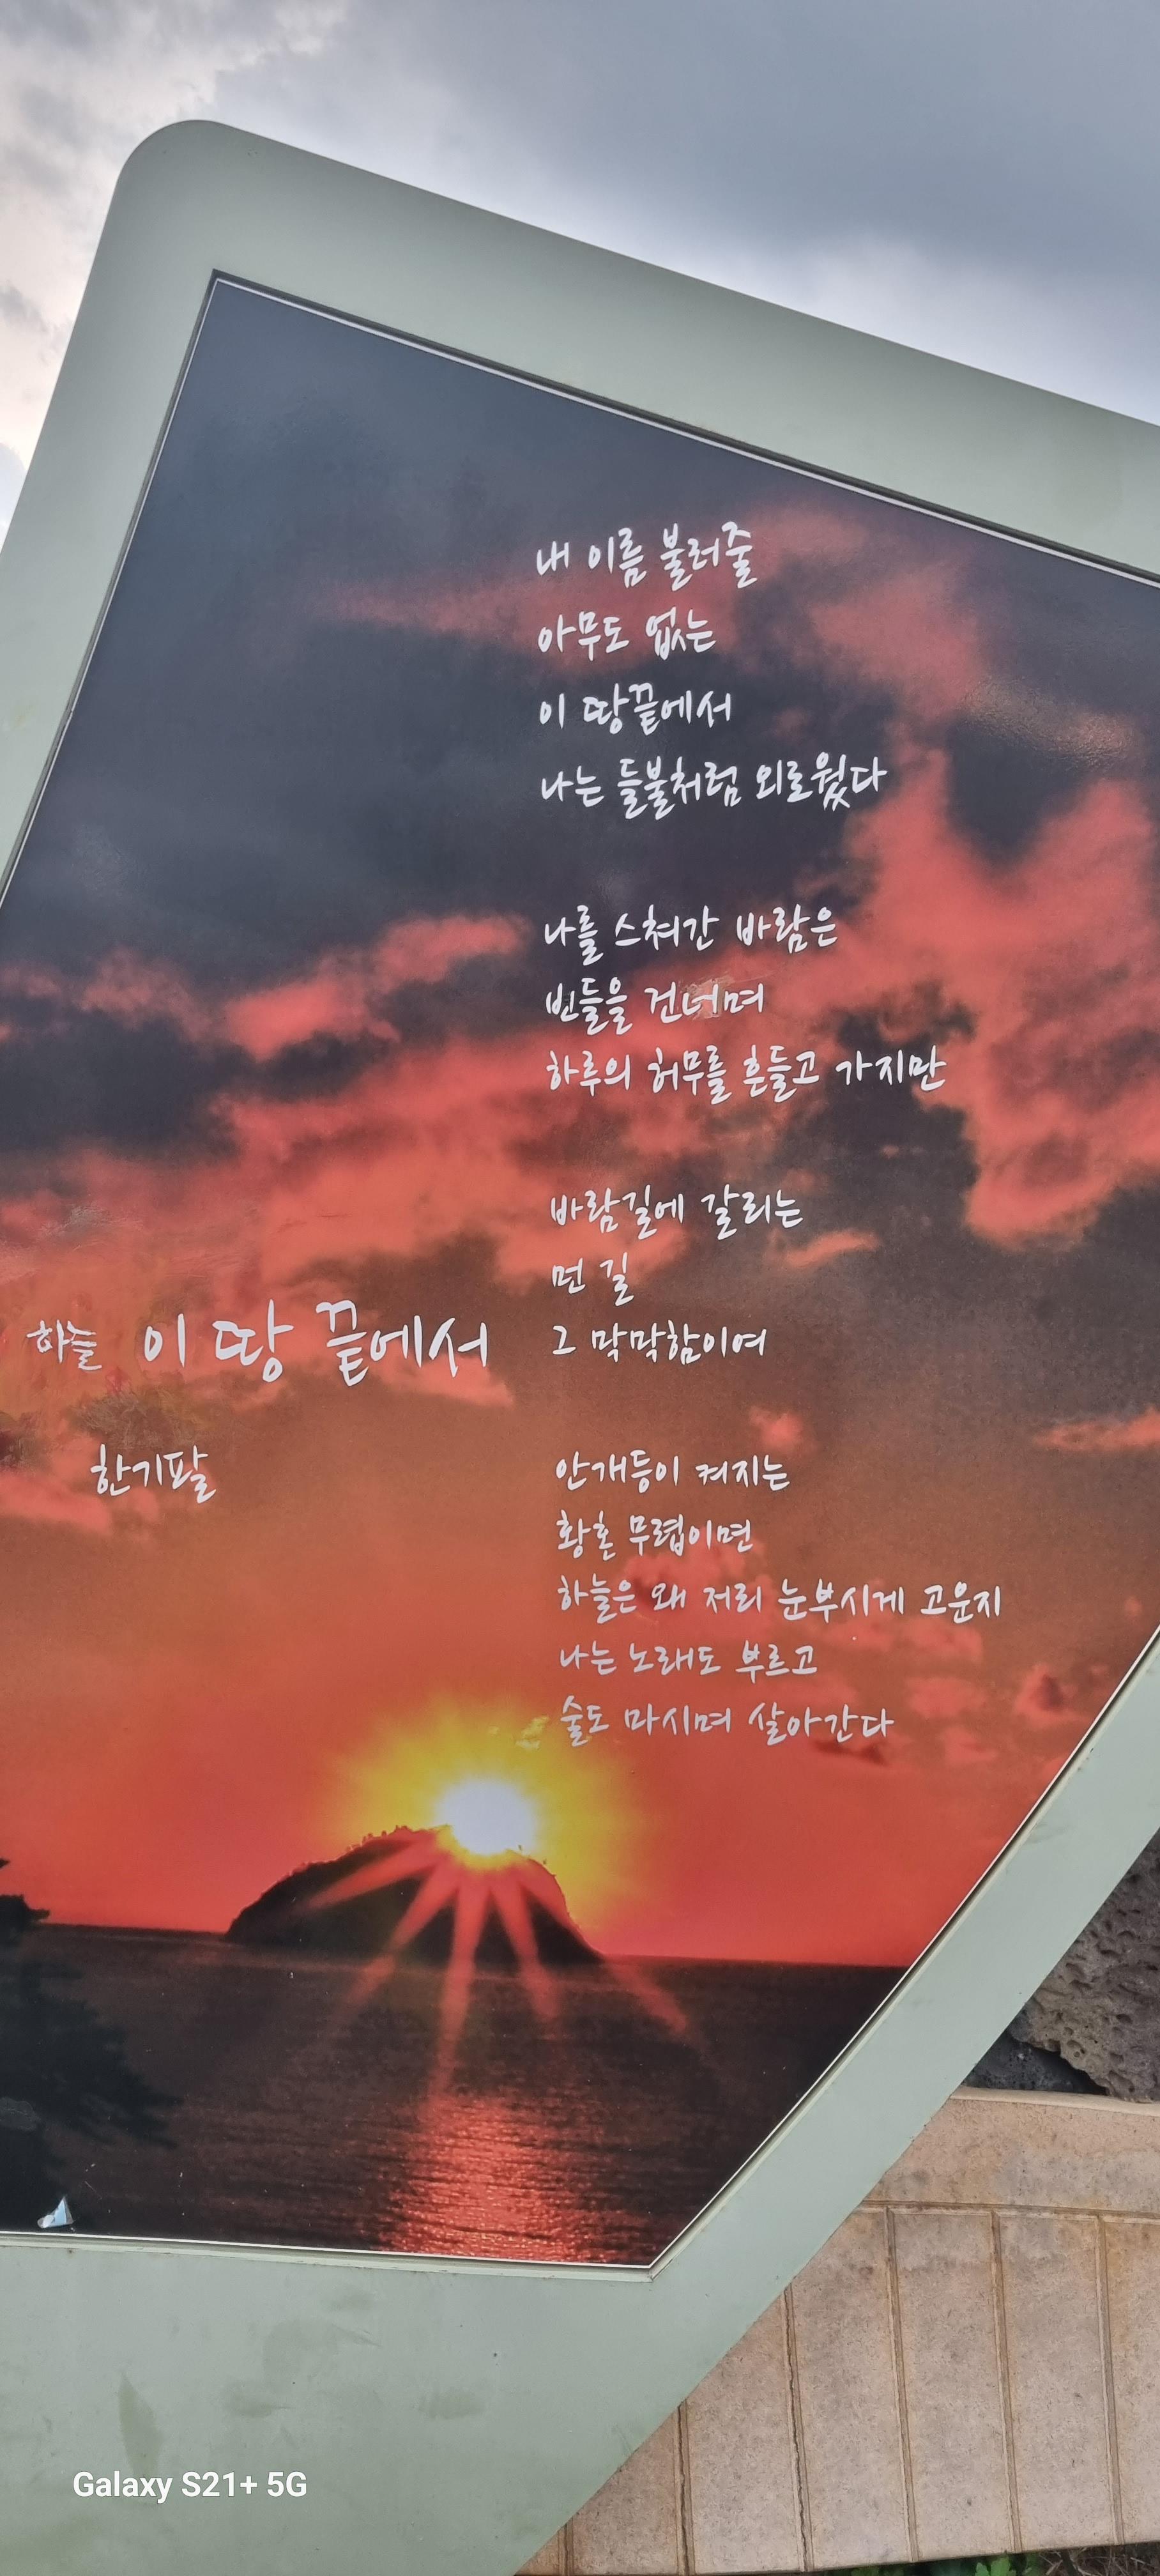 하늘 이 땅 끝에서
한기팔
내 이름 불러줄
아무도 없는
이 땅끝에서
나는 들불처럼 외로웠다
나를 스쳐간 바람은
빈들을 건너며
하루의 허무를 흔들고 가지만
바람길에 갈리는
먼 길
그 막막함이여
안개등이 켜지는
황혼 무렵이면
하늘은 왜 저리 눈부시게 고운지
나는 노래도 부르고
술도 마시며 살아간다
Galaxy S21+ 5G